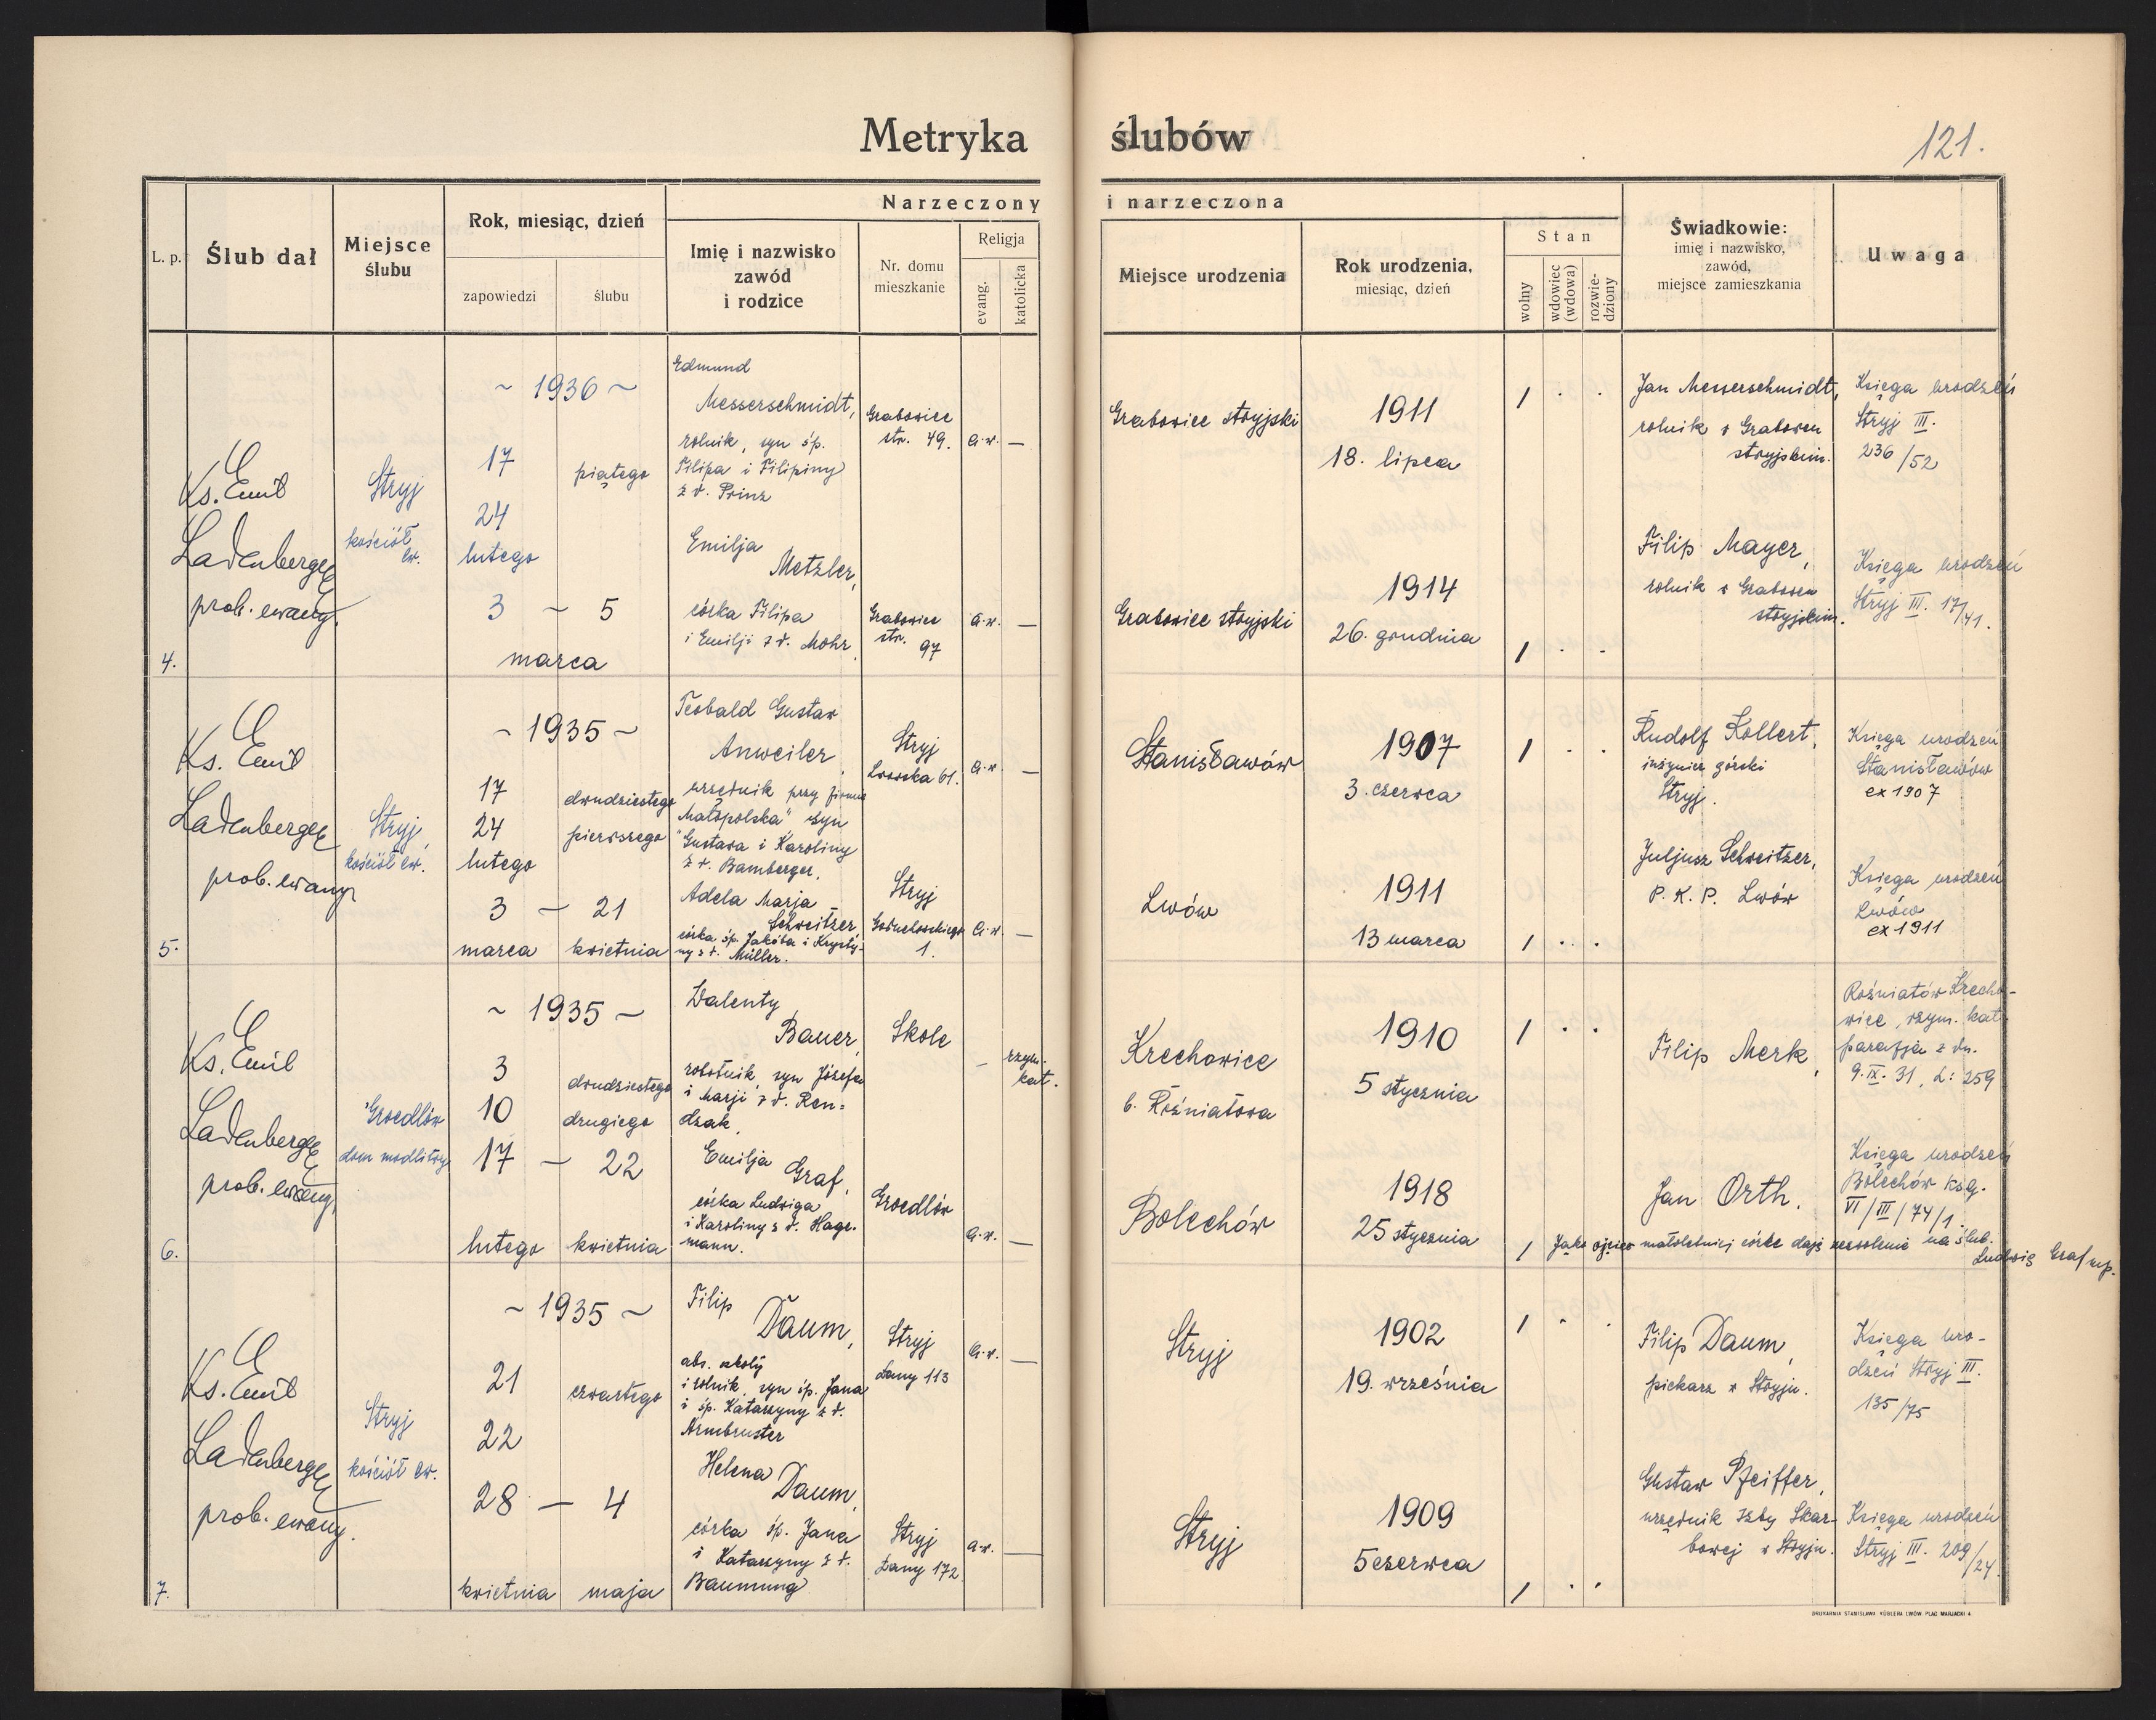 Metryka ślubów
121.
L. p.
Ślub dał
Miejsce
ślubu
Rok, miesiąc, dzień
zapowiedzi
ślubu
Narzeczony i narzeczona
Imię i nazwisko
zawód
i rodzice
Nr. domu
mieszkanie
Religja
evang.
katolicka
Miejsce urodzenia
Rok urodzenia,
miesiąc, dzień
Stan
wolny
wdowiec
(wdowa)
rozwie-
dziony
Świadkowie:
imię i nazwisko,
zawód,
miejsce zamieszkania
Uwaga
4.
Ks. Emil
Ladenberger
prob. ewang.
Stryj
kościół
ew.
~ 1936 ~
17
piątego
24
lutego
3 ~ 5
marca
Edmund
Messerschmidt,
rolnik, syn śp.
Filipa i Filipiny
z d. Prinz
Grabowiec
str. 49.
a.w. —
Grabowiec stryjski
1911
18. lipca
1 . .
Jan Messerschmidt,
rolnik w Grabowcu
stryjskim.
Księga urodzeń
Stryj III.
236/52
Emilja
Metzler,
córka Filipa
i Emilji z d. Mohr
Grabowiec
str. 97
a.w. —
Grabowiec stryjski
1914
26. grudnia
1 . .
Filip Mayer,
rolnik w Grabowcu
stryjskim.
Księga urodzeń
Stryj III. 17/41.
5.
Ks. Emil
Ladenberger
prob. ewang.
Stryj,
kościół ew.
~ 1935 ~
17
dwudziestego
24
pierwszego
lutego
3 — 21
marca kwietnia
Teobald Gustaw
Anweiler,
urzędnik przy firmie
"Małopolska" syn
Gustawa i Karoliny
z d. Bamberger,
Stryj
Lwowska 61.
a.w. —
Stanisławów
1907
3. czerwca
1 . .
Rudolf Kollert,
inżynier górski
Stryj.
Księga urodzeń
Stanisławów
ex 1907
Adela Marja
Schweitzer,
córka śp. Jakóba i Krysty-
ny z d. Müller.
Stryj
Gołuchowskiego
1.
a.w. —
Lwów
1911
13 marca
1 . .
Juljusz Schweitzer,
P. K. P. Lwów
Księga urodzeń
Lwów
ex 1911
6.
Ks. Emil
Ladenberger
prob. ewang.
Groedlów
dom modlitwy
~ 1935 ~
3
dwudziestego
10
drugiego
17 — 22
lutego kwietnia
Walenty
Bauer,
robotnik, syn Józefa
i Marji z d. Ren=
dzak,
Skole
— rzym.
kat.
Krechowice
b. Rożniatowa
1910
5 stycznia
1 . .
Filip Merk,
Rożniatów Krecho-
wice, rzym. kat.
parafja z dn.
9.IX.31, L: 259
Emilja
Graf,
córka Ludwiga
i Karoliny z d. Hage-
mann.
Groedlów
a.w. —
Bolechów
1918
25 stycznia
1
Jan Orth.
Księga urodzeń
Bolechów ksg.
VI/III/74/1.
Jako ojciec małoletniej córki daję zezwolenie na ślub.
Ludwig Graf mp.
7.
Ks. Emil
Ladenberger
prob. ewang.
Stryj
kościół ew.
~ 1935 ~
21
czwartego
22
28 — 4
kwietnia maja
Filip
Daum,
abs. szkoły
i rolnik, syn śp. Jana
i śp. Katarzyny z d.
Armbruster
Stryj
Łany 113
a.w. —
Stryj
1902
19. września
1 . .
Filip Daum,
piekarz w Stryju.
Księga uro-
dzeń Stryj III.
135/75
Helena
Daum,
córka śp. Jana
i Katarzyny z d.
Baumung
Stryj
Łany 172
a.w. —
Stryj
1909
5 czerwca
1 . .
Gustaw Pfeiffer,
urzędnik Izby Skar-
bowej w Stryju.
Księga urodzeń
Stryj III. 209/24.
DRUKARNIA STANISŁAWA KÜBLERA LWÓW PLAC MARJACKI 4